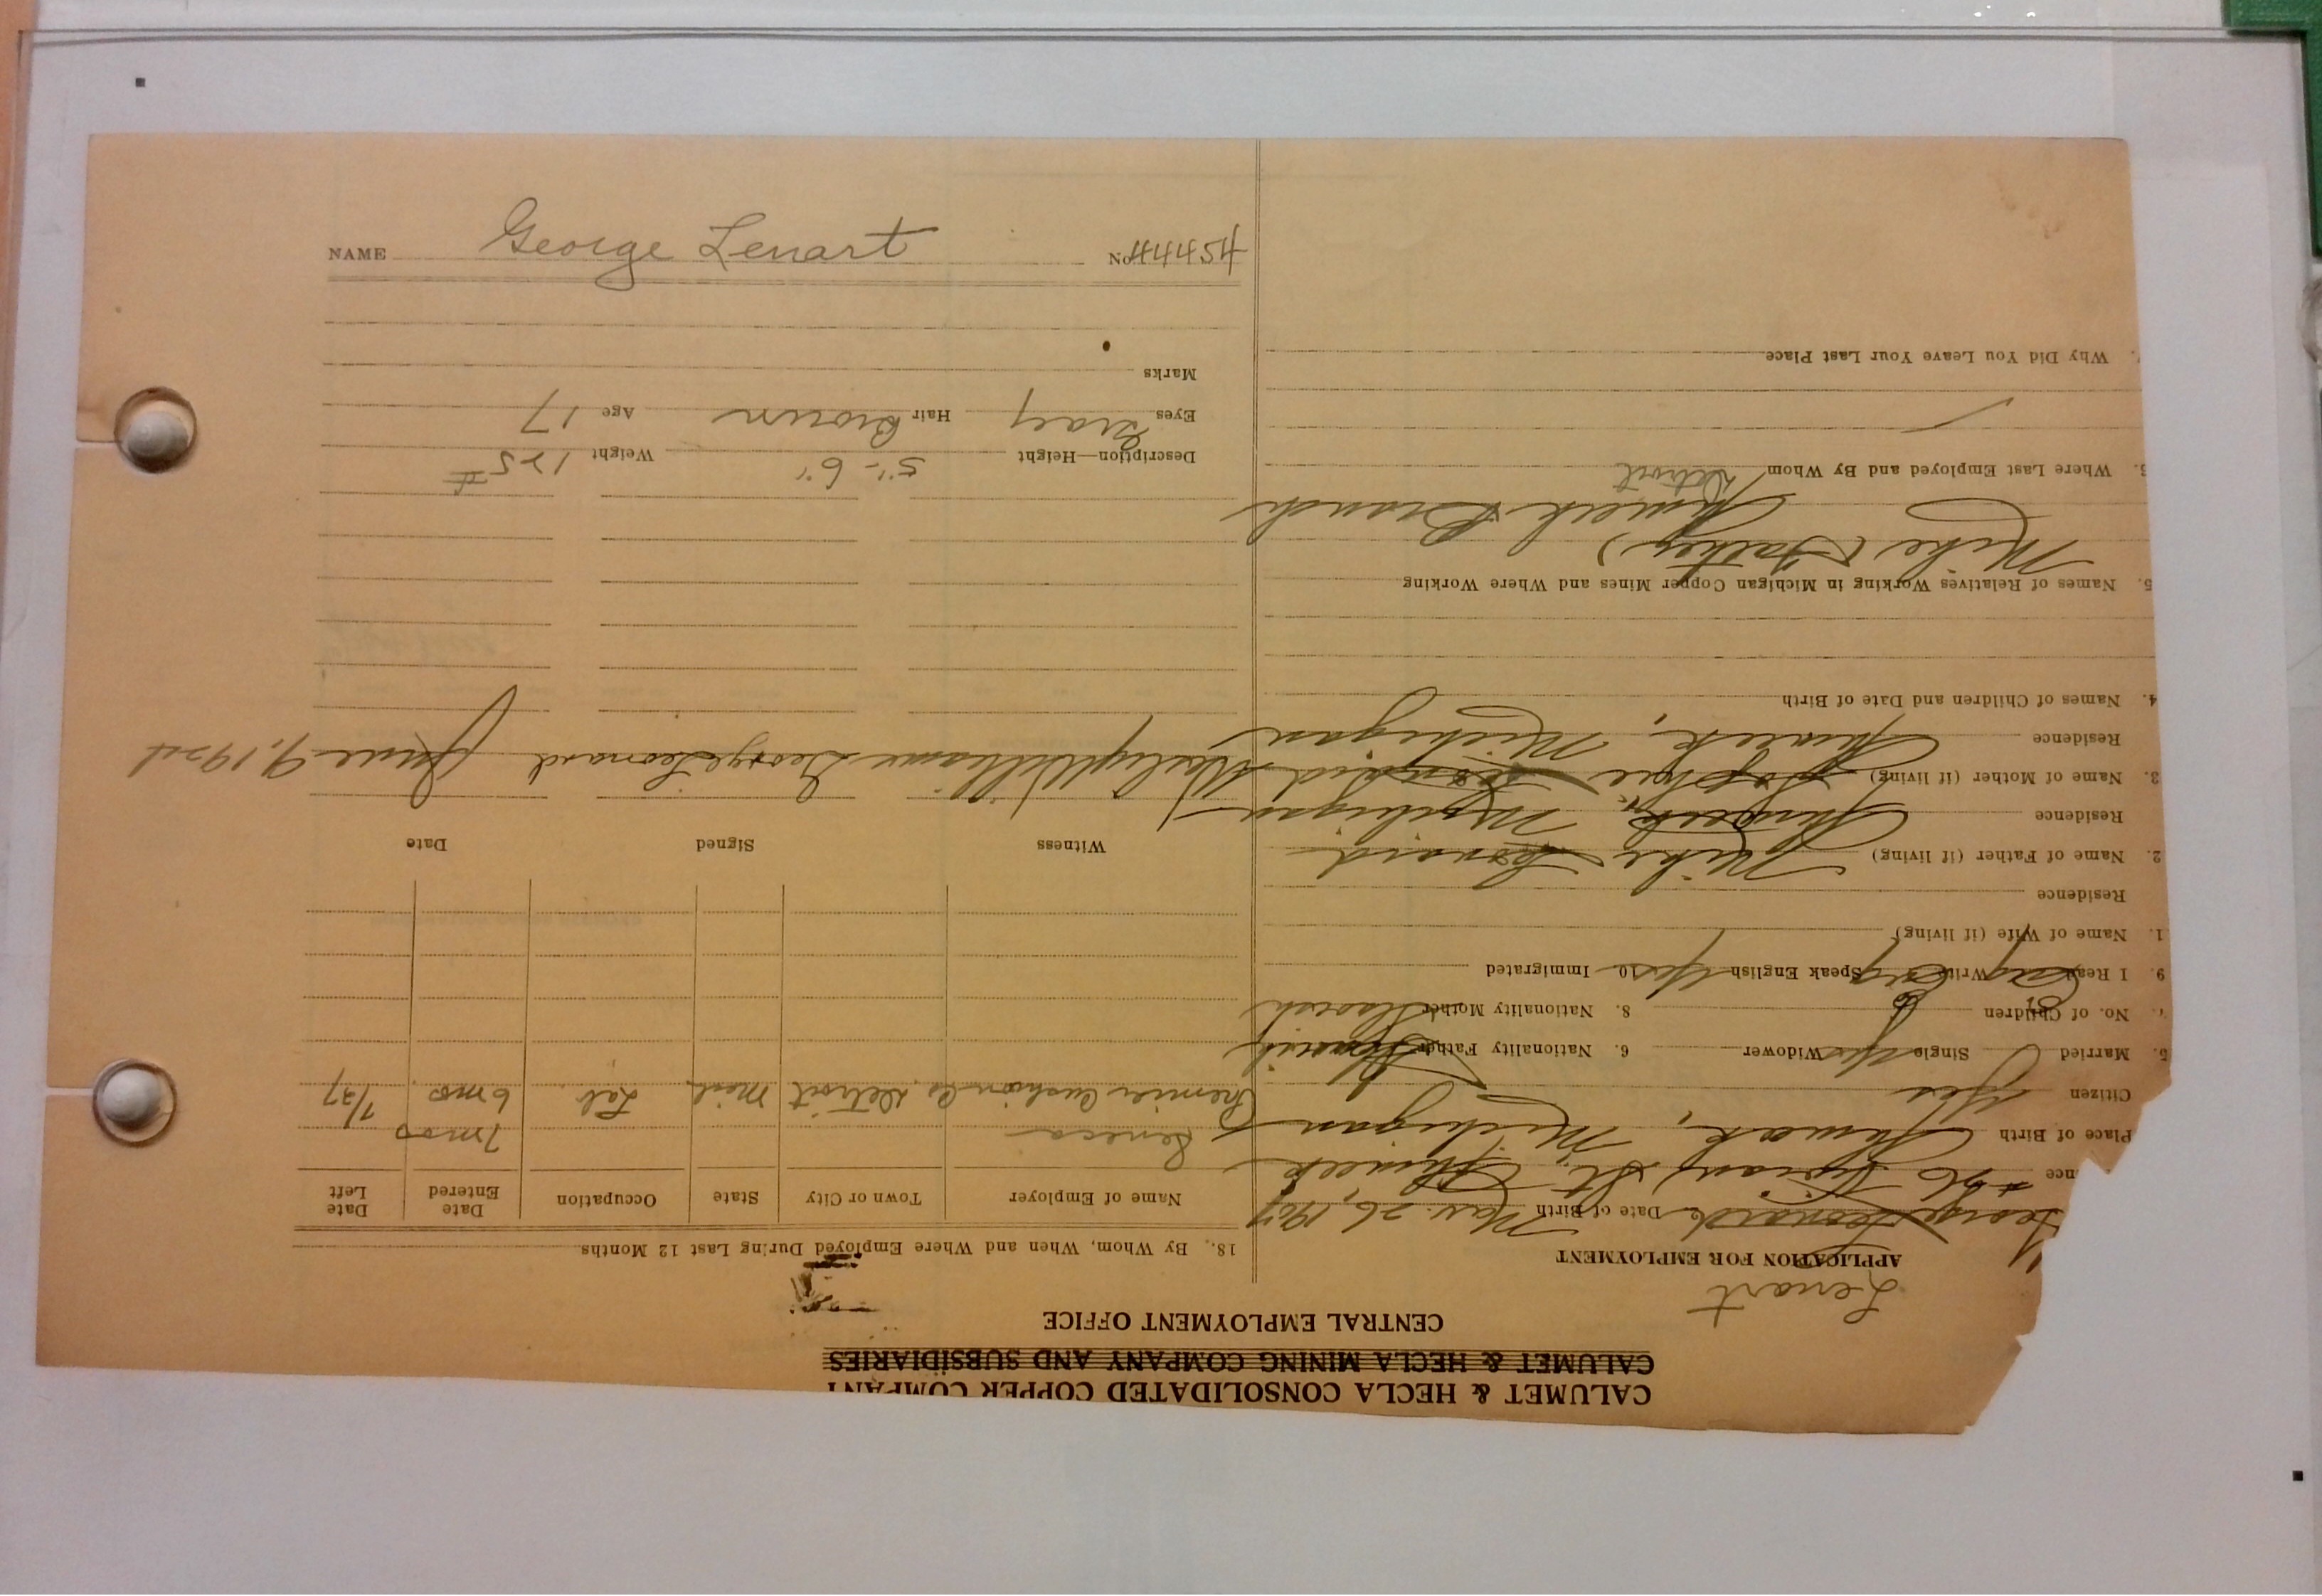 NAME George Lenart No. 44454
CALUMET & HECLA CONSOLIDATED COPPER COMPANY
CALUMET & HECLA MINING COMPANY AND SUBSIDIARIES
CENTRAL EMPLOYMENT OFFICE
Lenart
APPLICATION FOR EMPLOYMENT
George Leonard Date of Birth Mar. 26, 1907
nce #36 St. Ahmeek
Place of Birth Ahmeek, Michigan
Citizen Yes
5. Married Single Yes Widower 6. Nationality Father
7. No. of Children 8. Nationality Mother
9. I Read Write Speak English Yes 10. Immigrated
1. Name of Wife (if living)
Residence
2. Name of Father (if living) Mike Leonard
Residence Ahmeek, Michigan
3. Name of Mother (if living) Sophie Leonard
Residence Ahmeek, Michigan
4. Names of Children and Date of Birth
5. Names of Relatives Working in Michigan Copper Mines and Where Working
Mike (Father) Ahmeek Branch
Where Last Employed and By Whom Detroit
Why Did You Leave Your Last Place
18. By Whom, When and Where Employed During Last 12 Months
Name of Employer Town or City State Occupation Date Entered Date Left
Seneca 7 mos
Premier Cushion Co. Detroit Mich. Lab. 6 mos. 7/27
Witness Signed Date
Williams George Leonard June 9, 1924
Description—Height 5'-6" Weight 125#
Eyes Gray Hair Brown Age 17
Marks